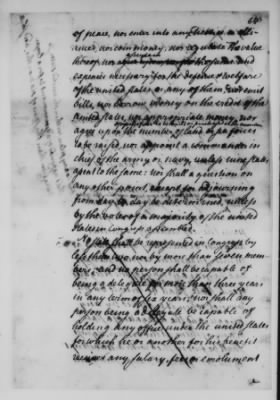 of peace, nor enter into any treaties or alli-
ances, nor coin money, nor regulate the value
thereof, nor ascertain the sums and
expences necessary for the defence & welfare
of the united states, or any of them; nor emit
bills, nor borrow money on the credit of the
united states, nor appropriate money, nor
agree upon the number of
to be raised, nor appoint a commander in
chief of the army or navy, unless nine states
assent to the same: nor shall a question on
any other point, except for adjourning
from day to day be determined, unless
by the votes of a majority of the united
states in Congress assembled.
No state shall be represented in Congress by
less than two, nor by more than seven mem-
bers; and no person shall be capable of
being a delegate for more than three years
in any term of six years; nor shall any
person being a delegate be capable of
holding any office under the united states
for which he or another for his benefit
receives any salary, fees or emolument